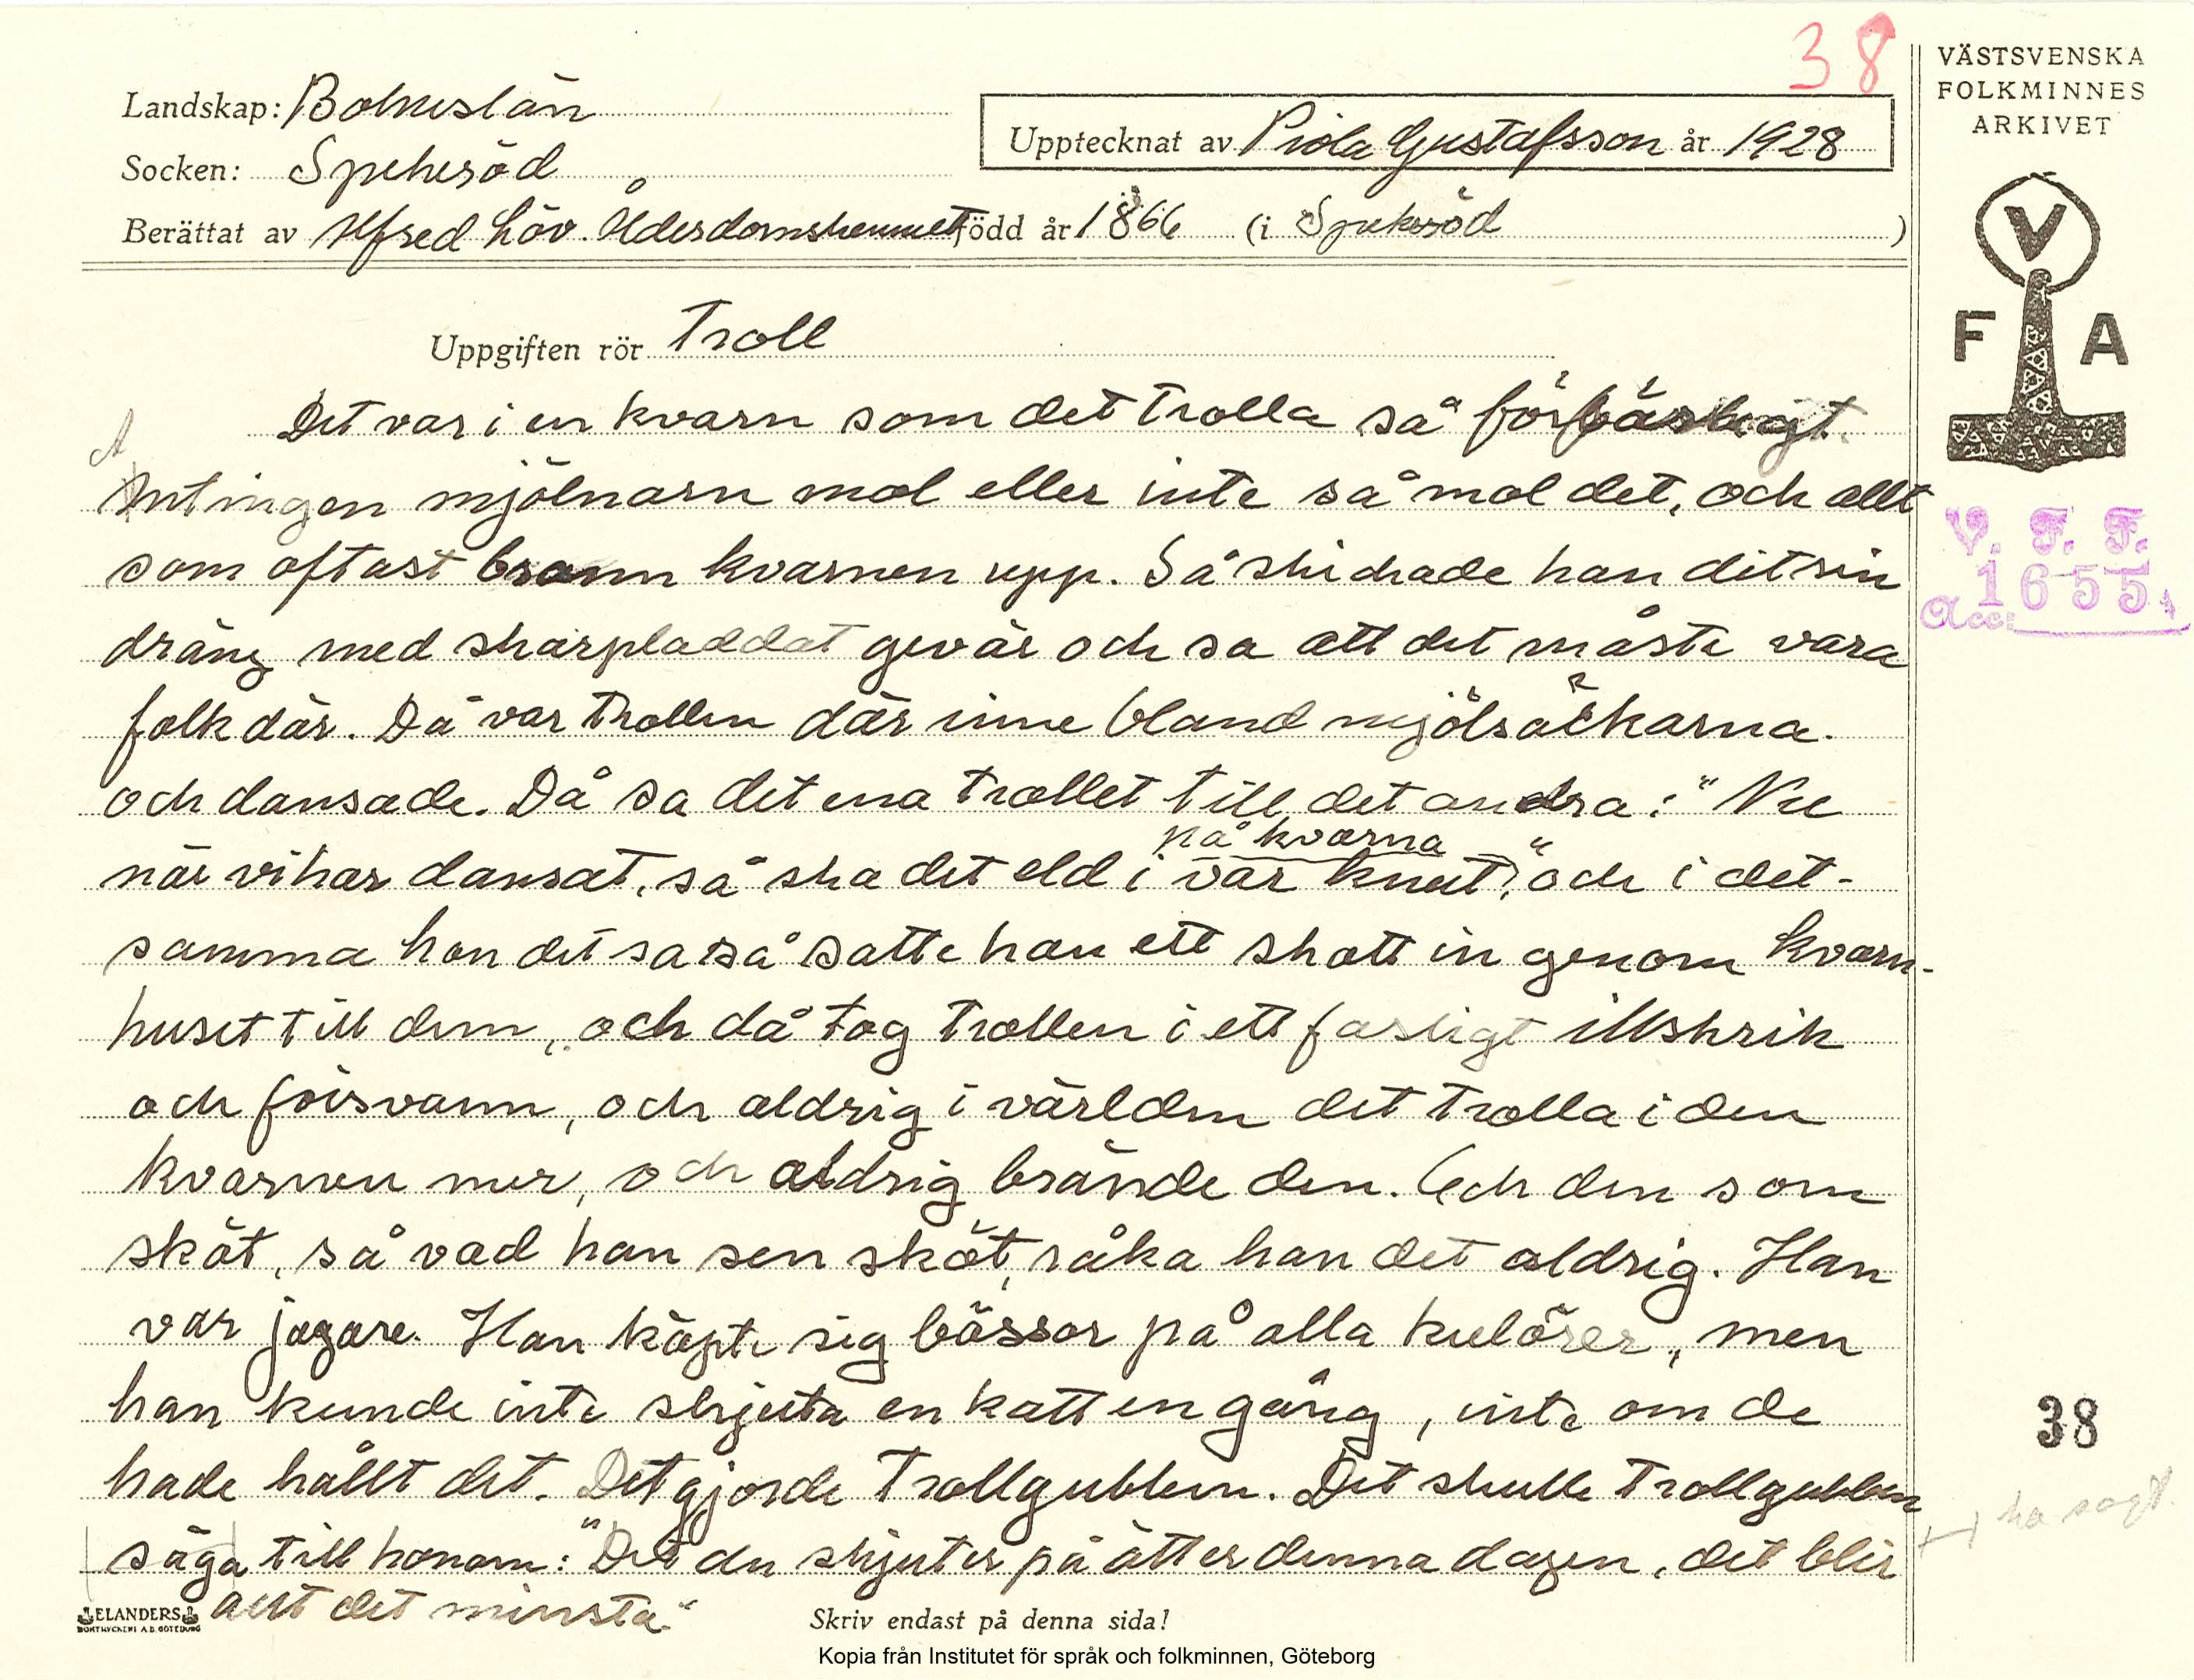 38
VÄSTSVENSKA
FOLKMINNES
ARKIVET
Landskap: Bohuslän
Upptecknat av Viola Gustafsson år 1928
Socken: Spekeröd
Berättat av Alfred Löv. Ålderdomshemmet född år 1866 (i Spekeröd )
V
F A
Uppgiften rör Troll
Det var i en kvarn som det trolla så förfärligt.
Antingen mjölnarn mol eller inte så mol det, och allt
som oftast brann kvarnen upp. Så skickade han dit sin
dräng med skarpladdat gevär och sa att det måste vara
folk där. Då var trollen där inne bland mjölsäckarna.
och dansade. Då sa det ena trollet till det andra: "Nu
på kvarna
när vi har dansat, så ska det eld i var knut", och i det-
samma hon det sa så satte han ett skott in genom kvarn-
huset till dem, och då tog trollen i ett farligt illskrik
och försvann, och aldrig i världen det trolla i den
kvarnen mer, och aldrig brände den. Och den som
sköt, så vad han sen sköt, råka han det aldrig. Han
var jagare. Han köpte sig bössor på alla kulörer, men
han kunde inte skjuta en katt en gång, inte om de
hade hållt det. Det gjorde trollgubben. Det skulle trollgubben
ha sagt
säga till honom: "Det du skjuter på åtter denna dagen, det blir
allt det minsta."
V. F. F.
Acc: 1655
38
ELANDERS
BOKTRYCKERI A.B. GÖTEBORG
Skriv endast på denna sida!
Kopia från Institutet för språk och folkminnen, Göteborg